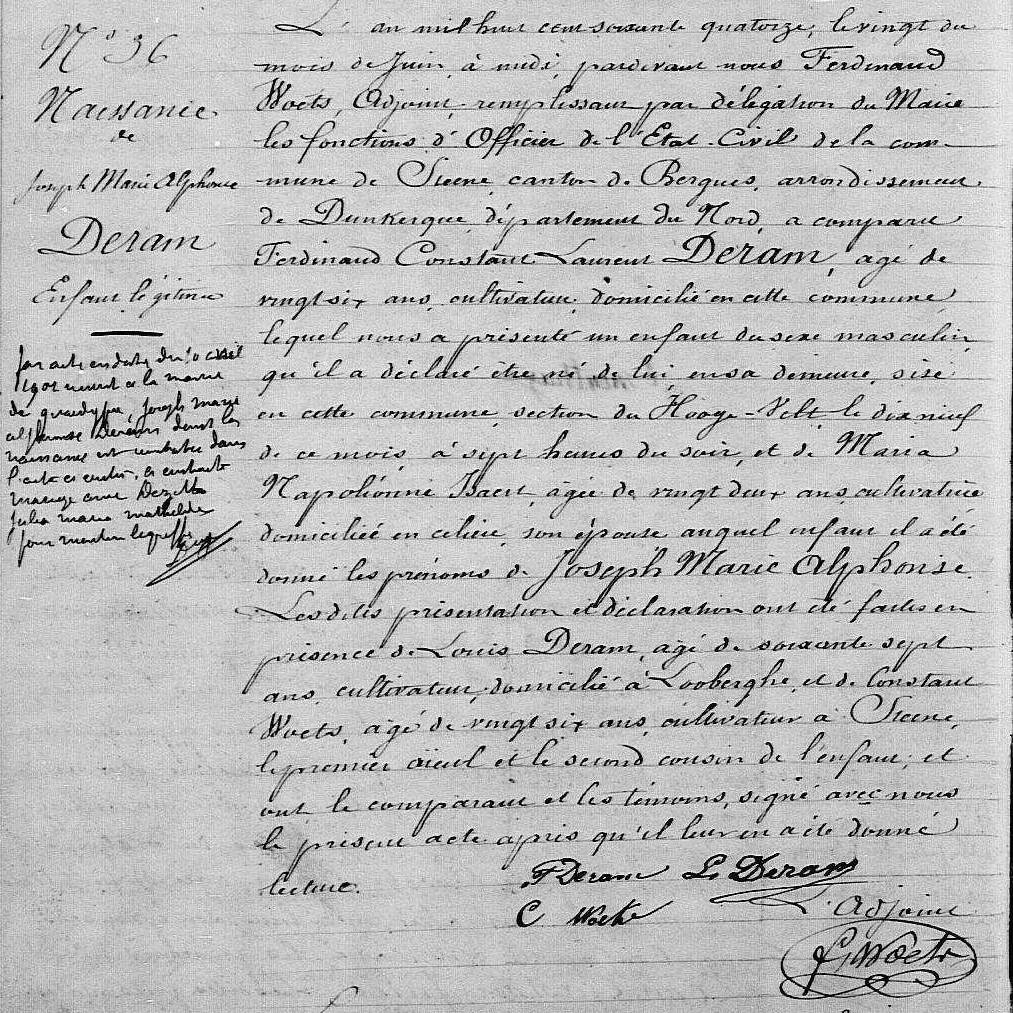 N° 36
Naissance
de
Joseph Marie Alphonse
Deram
Enfant légitime
par acte en date du 10 avril
1901 à la mairie
de quaedypre, Joseph marie
alphonse Deram dont la
naissance est constatée dans
l'acte ci contre, a contracté
mariage avec
Julia maria mathilde
pour mention
L'an mil huit cent soixante quatorze, le vingt du
mois de Juin, à midi, pardevant nous Ferdinand
Woets, Adjoint remplissant par délégation du Maire
les fonctions d'Officier de l'Etat-Civil de la com-
mune de Steene, canton de Bergues, arrondissement
de Dunkerque, département du Nord, a comparu
Ferdinand Constant Laurent Deram, agé de
vingt six ans, cultivateur, domicilié en cette commune,
lequel nous a présenté un enfant du sexe masculin
qu'il a déclaré être né de lui, en sa demeure, sise
en cette commune, section du Hooge-Velt, le dix neuf
de ce mois, à sept heures du soir, et de Maria
Napoléonne Baert, âgée de vingt deux ans cultivatrice
domiciliée en celieu, son épouse auquel enfant il a été
donné les prénoms de Joseph Marie Alphonse.
Lesdites présentation et déclaration ont été faites en
présence de Louis Deram, agé de soixante sept
ans, cultivateur, domicilié à Looberghe, et de Constant
Woets, agé de vingt six ans, cultivateur à Steene,
le premier aïeul et le second cousin de l'enfant; et
ont le comparant et les témoins, signé avec nous
le présent acte après qu'il leur en a été donné
lecture.
F Deram L Deram
C Woets
L'Adjoint
F Woets